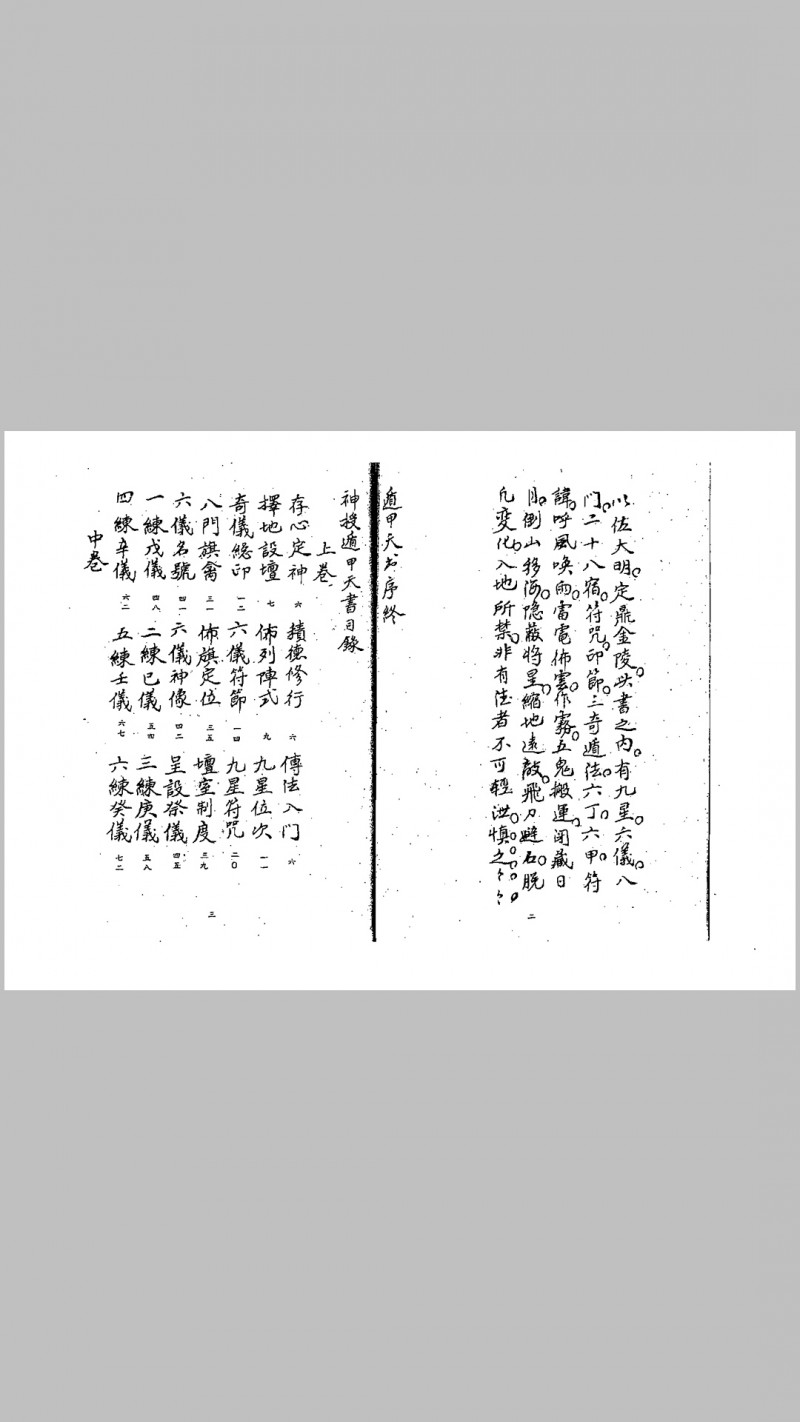 以佐大明。定鼎金陵。此書之内。有九星。六儀。八
门。二十八宿。符咒。印節。三奇遁法。六丁六甲。符
諱。呼風唤雨。雷電佈雲。作霧。五鬼搬運。闭藏日
月。倒山移海。隐蔽将星。縮地遠敵。飛刀避石。脱
凡變化。入地所禁。非有法者不可輕洪。慎之。々。々。
二
遁甲天书序終
神授遁甲天書目錄
上卷
存心定神 六 積德修行 六 傳法入门 六
擇地設壇 七 佈列陣式 九 九星位次 一一
奇儀總印 一二 六儀符節 一四 九星符咒 二〇
八門旗禽 三一 佈旗定位 三五 壇室制度 三九
六儀名號 四一 六儀神像 四二 呈設祭儀 四五
一練戊儀 四八 二練己儀 五四 三練庚儀 五八
四練辛儀 六二 五練壬儀 六七 六練癸儀 七二
中卷
三